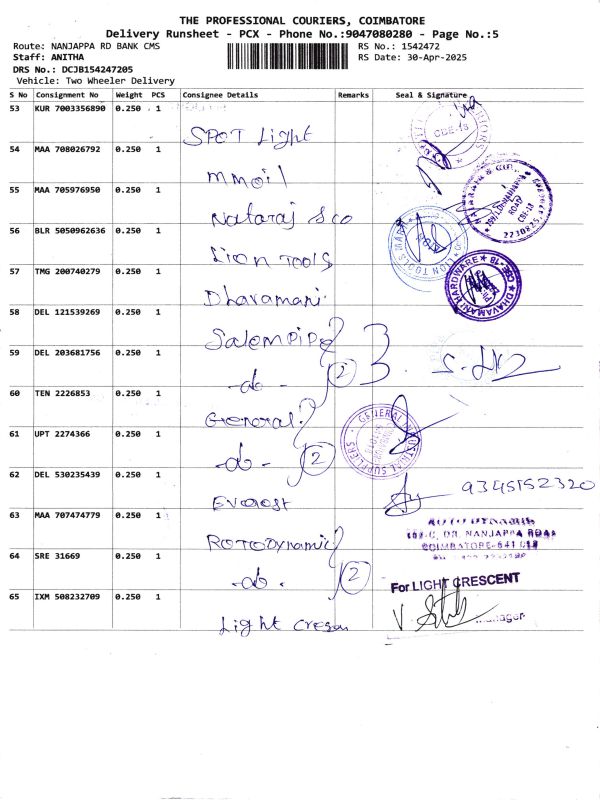 THE PROFESSIONAL COURIERS, COIMBATORE
Delivery Runsheet - PCX - Phone No.:9047080280 - Page No.:5
Route: NANJAPPA RD BANK CMS
RS No.: 1542472
Staff: ANITHA
RS Date: 30-Apr-2025
DRS No.: DCJB154247205
Vehicle: Two Wheeler Delivery
S No Consignment No Weight PCS Consignee Details Remarks Seal & Signature
53 KUR 7003356890 0.250 1
SPOT Light
CBE-18
54 MAA 708026792 0.250 1
mmoil
55 MAA 705976950 0.250 1
Nataraj & Co
ROAD
CBE-18
56 BLR 5050962636 0.250 1
Lion TOOLS
LION TOOLS MART
57 TMG 200740279 0.250 1
Dhavamani
DHAVAMANI HARDWARE CBE-18
58 DEL 121539269 0.250 1
Salem Pipe
59 DEL 203681756 0.250 1
-do- 2
60 TEN 2226853 0.250 1
General
GENERAL INDUSTRIAL SUPPLIERS
61 UPT 2274366 0.250 1
-do- 2
62 DEL 530235439 0.250 1
Everest
9345152320
63 MAA 707474779 0.250 1
ROTODynamic
ROTO DYNAMIK
DR. NANJAPPA ROAD
COIMBATORE-641 018
64 SRE 31669 0.250 1
-do- 2
For LIGHT CRESCENT
65 IXM 508232709 0.250 1
Light Cresen
Manager